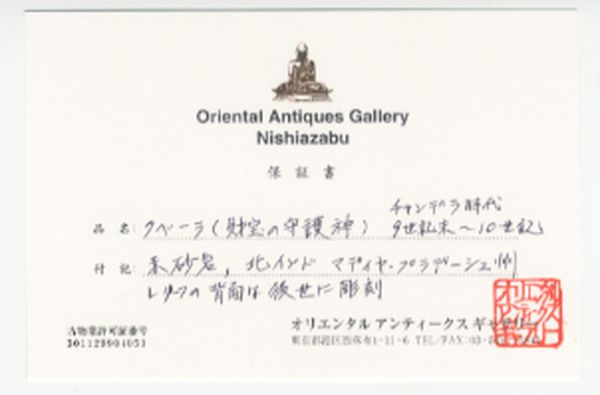 Oriental Antiques Gallery
Nishiazabu
保証書
チャンデラ時代
品名: クベーラ(財宝の守護神) 9世紀末~10世紀
付記: 赤砂岩, 北インド マディヤ・プラデーシュ州
レリーフの背面は後世に彫刻
古物業許可証番号
オリエンタル アンティークス ギャラリー
東京都港区西麻布1-11-6 TEL/FAX:03-